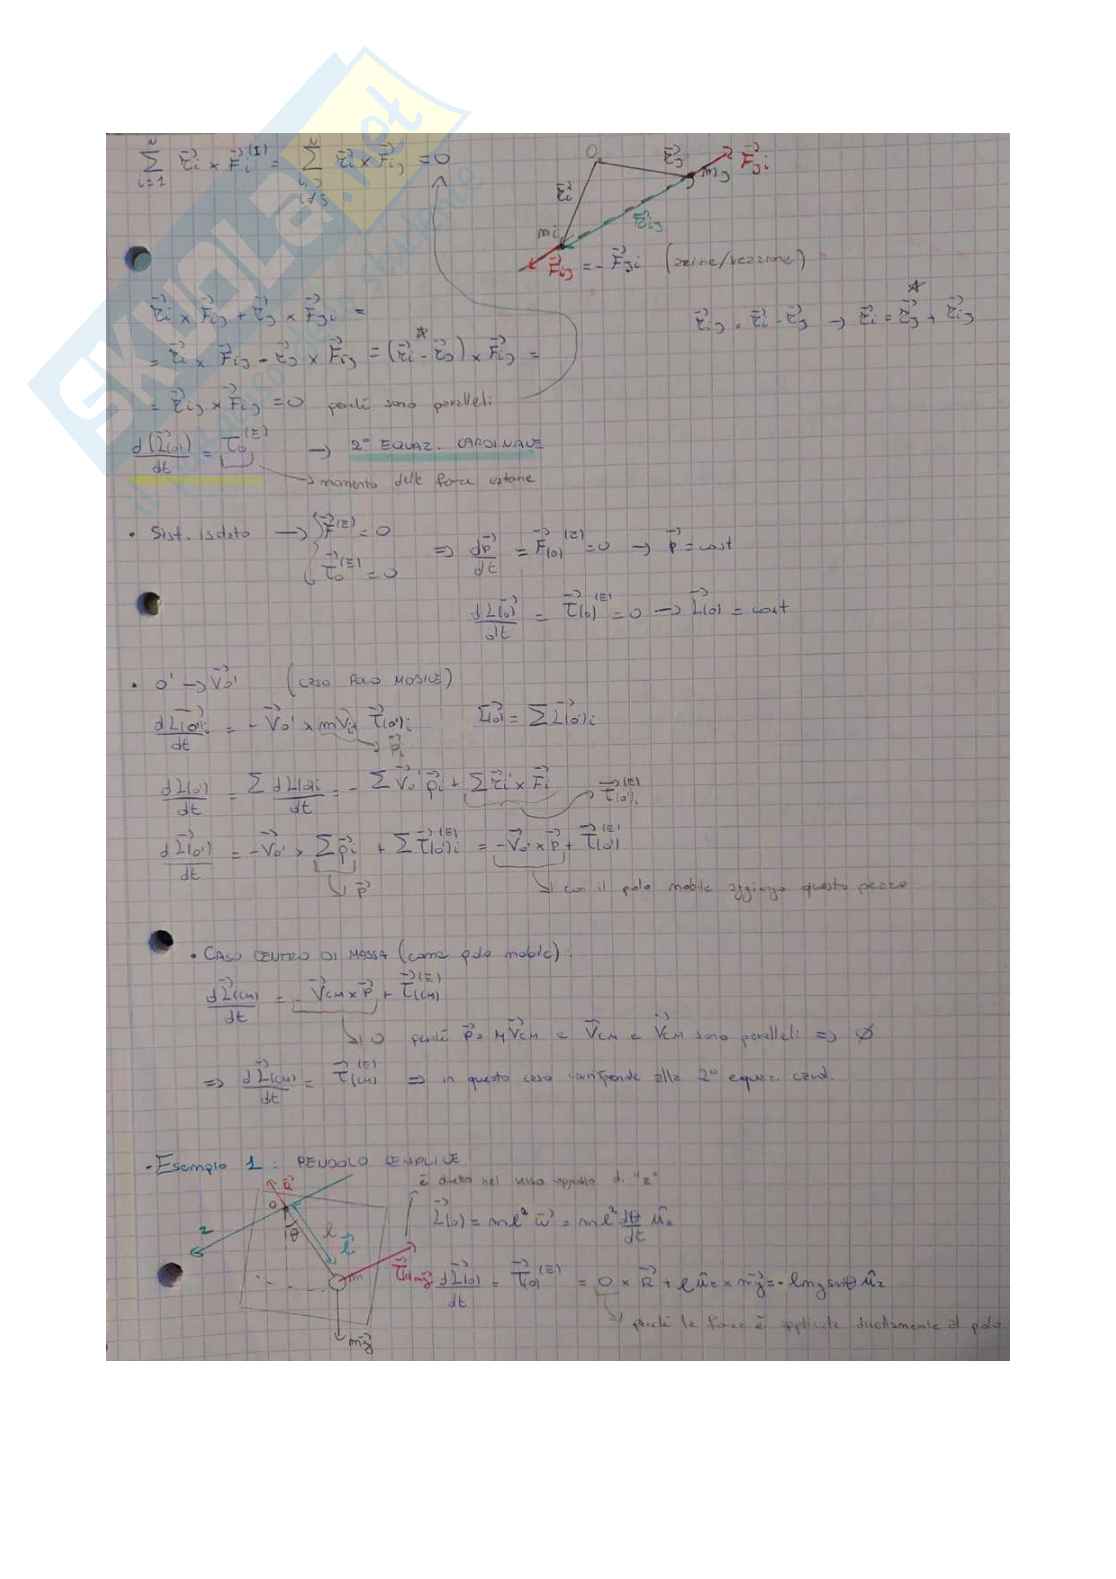 SKUOLA.net
∑_{i=1}^{N} r⃗i × F⃗i^(I) = ∑_{i,j i≠j}^{N} r⃗i × F⃗ij = 0
O r⃗j mj F⃗ji
r⃗i r⃗ij
mi
F⃗ij = - F⃗ji (azione/reazione)
r⃗i × F⃗ij + r⃗j × F⃗ji =
r⃗ij = r⃗i - r⃗j → r⃗i = r⃗j + r⃗ij
= r⃗i × F⃗ij - r⃗j × F⃗ij = (r⃗i - r⃗j) × F⃗ij =
= r⃗ij × F⃗ij = 0 perché sono paralleli
d(L⃗(o))/dt = τ⃗o^(E) → 2ª EQUAZ. CARDINALE
→ momento delle forze esterne
• Sist. isolato → F⃗^(E) = 0
τ⃗o^(E) = 0
⇒ dp⃗/dt = F⃗(o)^(E) = 0 → p⃗ = cost
dL⃗(o)/dt = τ⃗(o)^(E) = 0 → L⃗(o) = cost
• O' → V⃗o' (CASO POLO MOBILE)
dL⃗(o')i/dt = - V⃗o' × mV⃗i + τ⃗(o')i L⃗(o') = ∑ L⃗(o')i
→ p⃗i
dL(o')/dt = ∑ dL(o')i/dt = - ∑ V⃗o' p⃗i + ∑ r⃗i' × F⃗i → τ⃗(o')i^(E)
dL⃗(o')/dt = - V⃗o' × ∑ p⃗i + ∑ τ⃗(o')i^(E) = - V⃗o' × p⃗ + τ⃗(o')^(E)
↳ p⃗ ↳ con il polo mobile aggiungo questo pezzo
• CASO CENTRO DI MASSA (come polo mobile):
dL⃗(CM)/dt = - V⃗CM × p⃗ + τ⃗(CM)^(E)
↳ 0 perché p⃗ = MV⃗CM e V⃗CM e V⃗CM sono paralleli ⇒ ∅
⇒ dL⃗(CM)/dt = τ⃗(CM)^(E) ⇒ in questo caso corrisponde alla 2ª equaz. card.
• Esempio 1: PENDOLO SEMPLICE
è diretto nel verso opposto di "z"
R⃗ O θ l z m
L⃗(o) = ml² ω⃗ = ml² dθ/dt ûz
τ⃗(o)mg⃗
dL⃗(o)/dt = τ⃗(o)^(E) = 0 × R⃗ + l ûr × mg⃗ = - lmg sinθ ûz
↳ perché la forza è applicata direttamente al polo
mg⃗